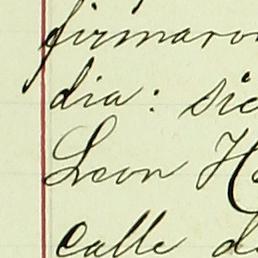 firmaro
dia: sie
Leon H
calle d